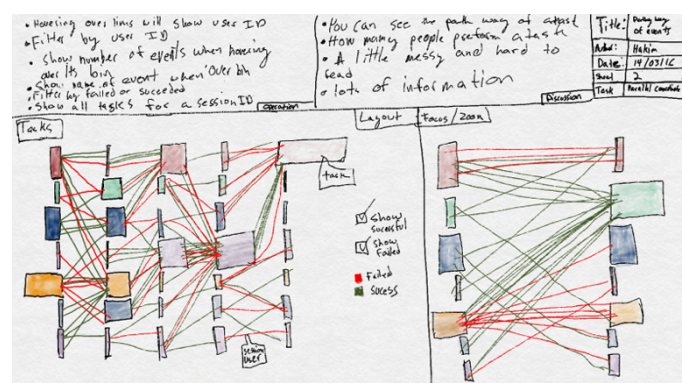 • Hovering over lines will show user ID
• Filter by user ID
• Show number of events when hovering
over its bin
• Show name of event when over bin
• Filter by failed or succeded
• Show all tasks for a session ID
operation
• You can see the path way of a task
• How many people preform a task
• A little messy and hard to
read
• lots of information
Discussion
Title:
of events
Author: Hakim
Date: 14/03/16
Sheet 2
Task
Tasks
Layout
Focus / Zoom
task
Show
Sucessful
Show
Failed
Failed
Sucess
session
User